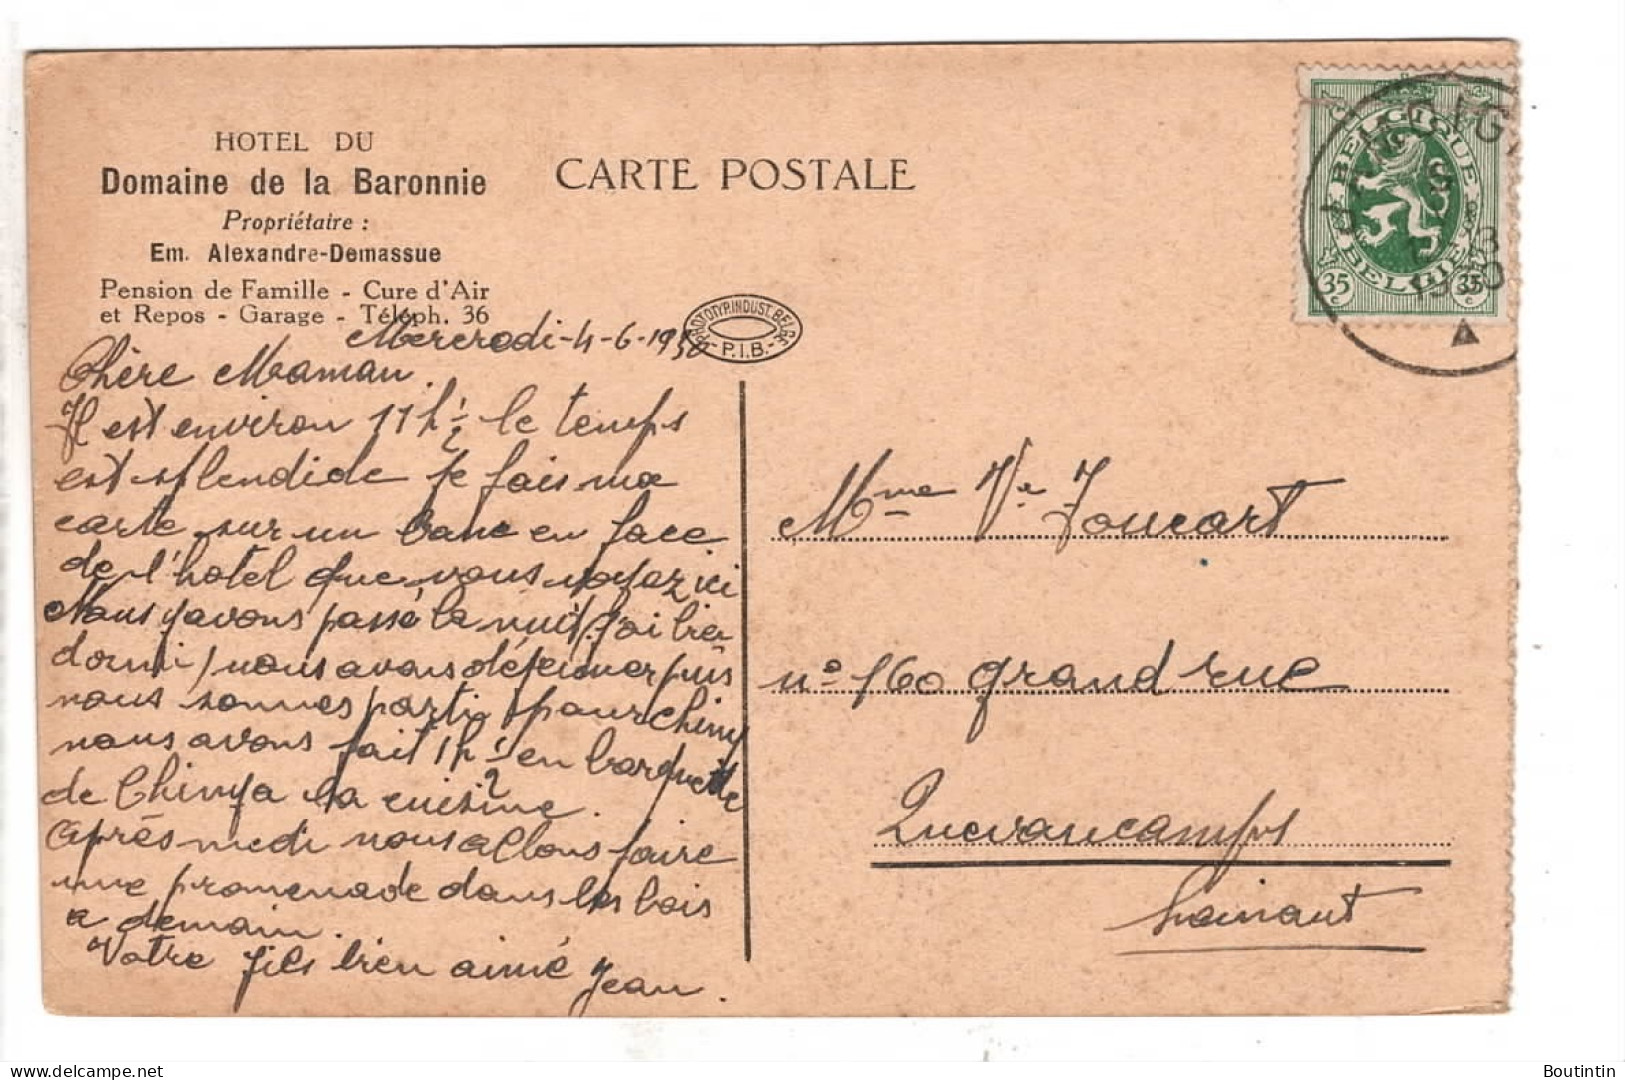 HOTEL DU
Domaine de la Baronnie
Propriétaire :
Em. Alexandre-Demassue
Pension de Famille - Cure d'Air
et Repos - Garage - Téléph. 36
CARTE POSTALE
PHOTOTYP. INDUST. BELGE
- P.I.B. -
BELGIQUE
BELGIE
35 c 35 c
Mercredi - 4-6-1930
Chère Maman.
Il est environ 11 h ½ le temps
est splendide je fais ma
carte sur un banc en face
de l'hotel que vous voyez ici
Nous y avons passé la nuit (j'ai bien
dormi) nous avons déjeuner puis
nous sommes parti pour Chiny
nous avons fait 1h ½ en barquette
de Chiny a la cuisine.
Après midi nous allons faire
une promenade dans les bois
a demain.
Votre fils bien aimé Jean.
Mme Ve Foucart
n° 160 grand rue
Quevaucamps
Hainaut
delcampe.net
Boutintin